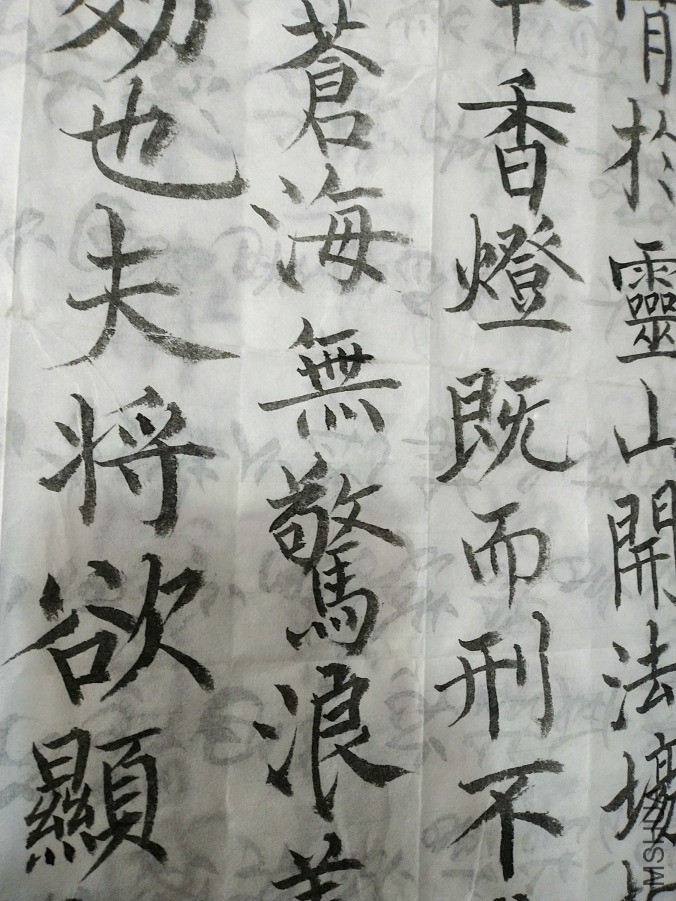 於靈山開法場
香燈既而刑不
蒼海無驚浪
効也夫将欲顯